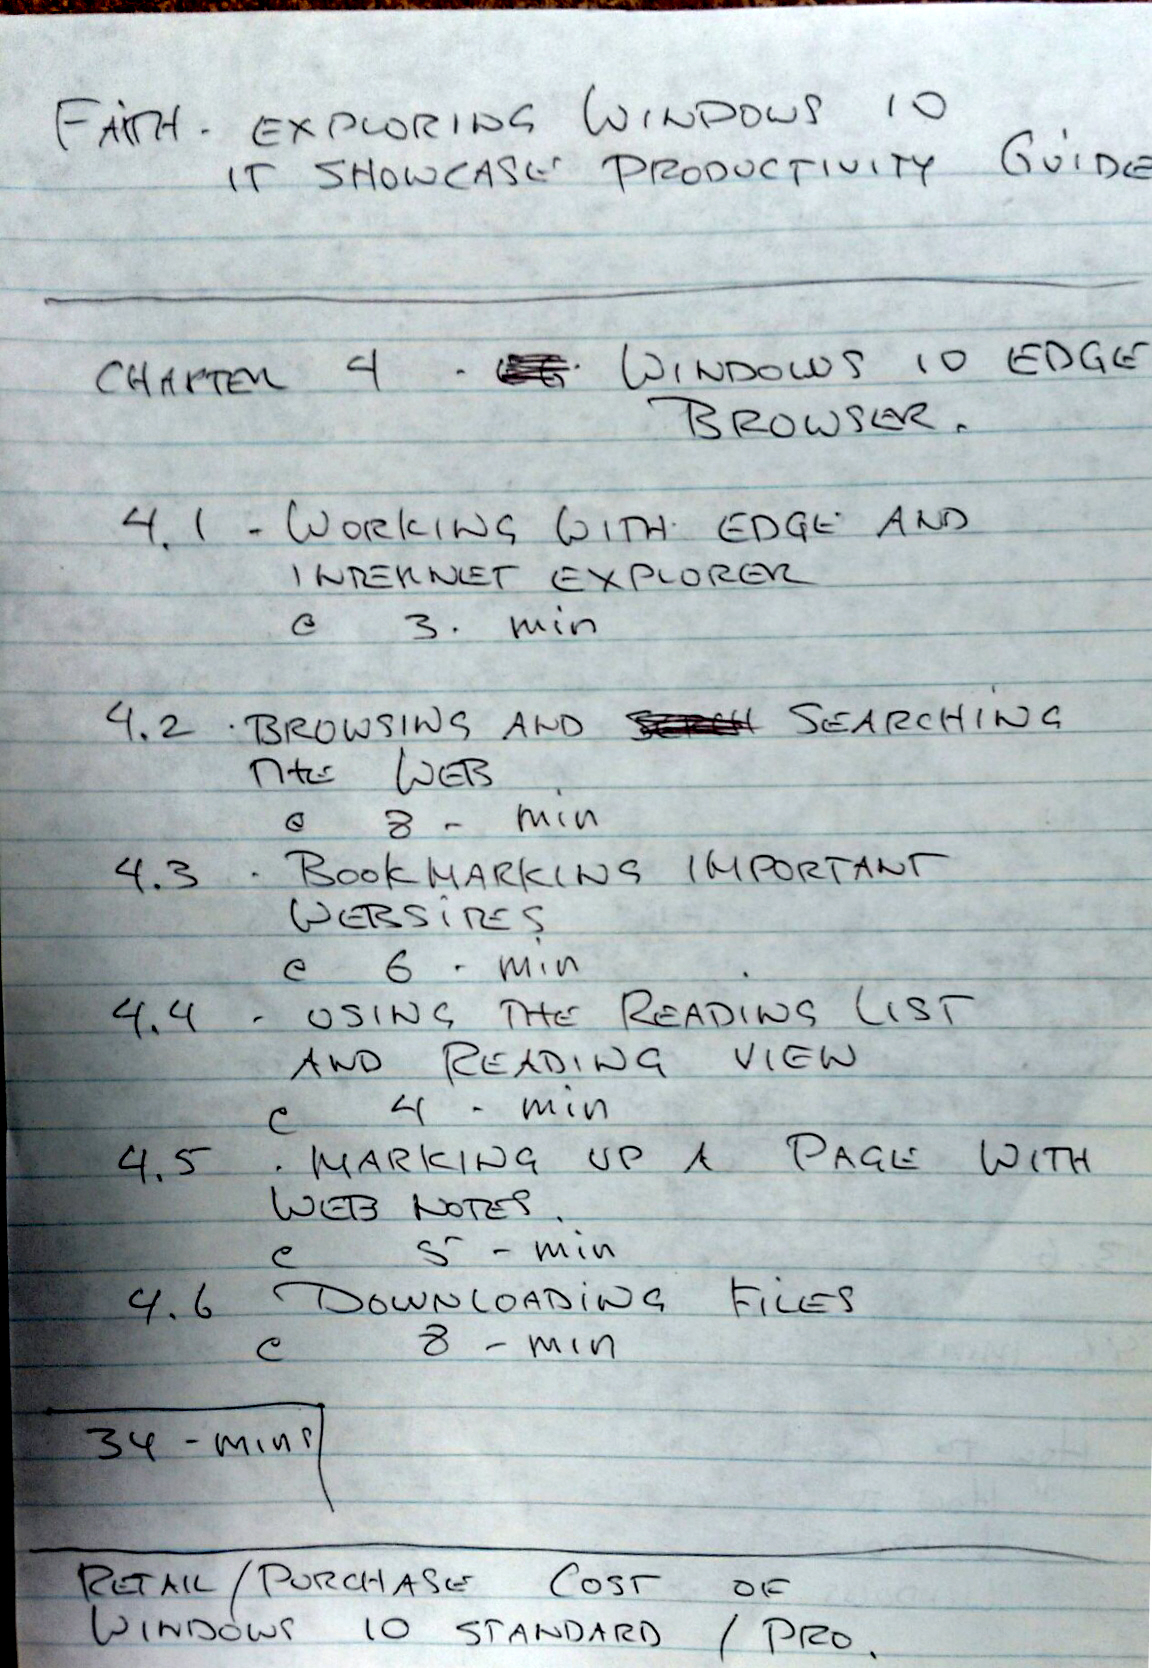 FAITH. EXPLORING WINDOWS 10
IT SHOWCASE PRODUCTIVITY GUIDE
CHAPTER 4 - WINDOWS 10 EDGE
BROWSER.
4.1 - WORKING WITH EDGE AND
INTERNET EXPLORER
@ 3. min
4.2 . BROWSING AND SEARCHING
THE WEB
@ 8 - min
4.3 . BOOKMARKING IMPORTANT
WEBSITES
@ 6 - min
4.4 - USING THE READING LIST
AND READING VIEW
@ 4 - min
4.5 . MARKING UP A PAGE WITH
WEB NOTES.
@ 5 - min
4.6 DOWNLOADING FILES
@ 8 - min
34 - mins
RETAIL/PURCHASE COST OF
WINDOWS 10 STANDARD / PRO.